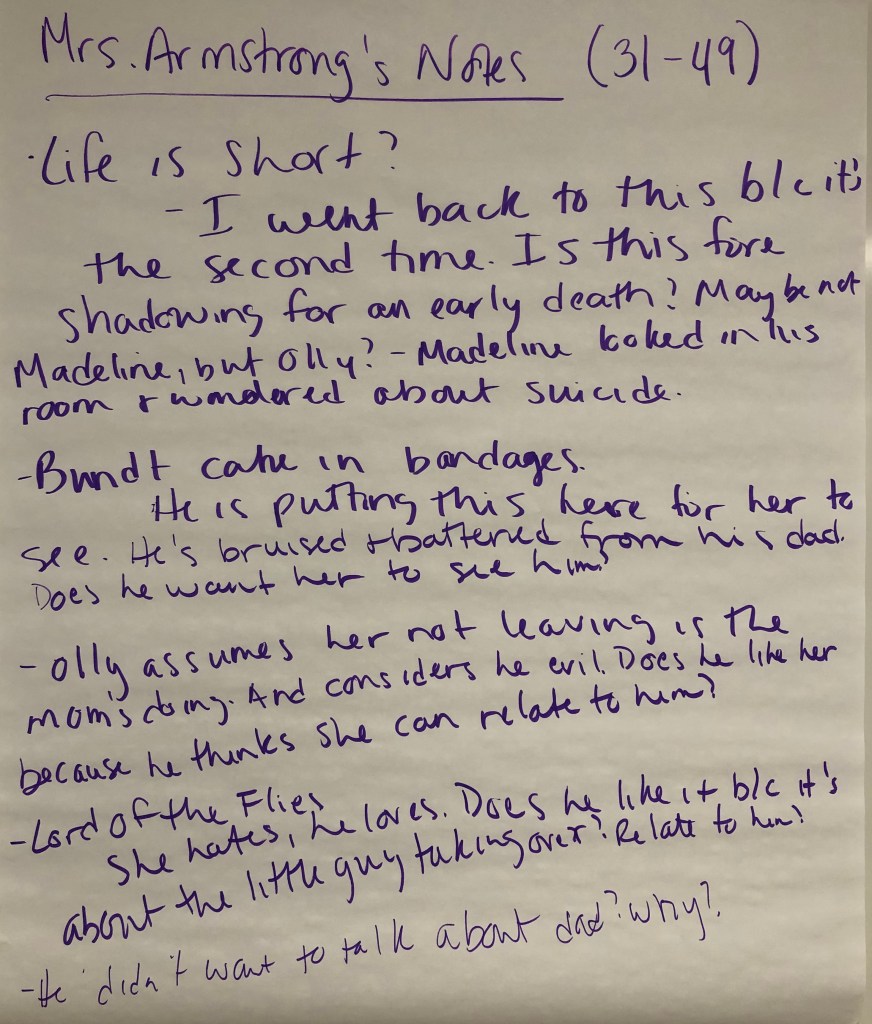 Mrs. Armstrong's Notes (31-49)
·Life is short?
- I went back to this b/c it's
the second time. Is this fore
shadowing for an early death? Maybe not
Madeline, but Olly? - Madeline looked in his
room + wondered about suicide.
-Bundt cake in bandages.
He is putting this here for her to
see. He's bruised + battered from his dad.
Does he want her to see him?
- Olly assumes her not leaving is the
mom's doing. And considers he evil. Does he like her
because he thinks she can relate to him?
-Lord of the Flies
She hates, he loves. Does he like it b/c it's
about the little guy taking over? Relate to him?
-He didn't want to talk about dad? Why?